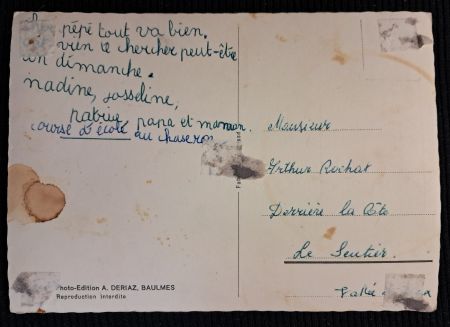 pépé tout va bien.
vien le chercher peut-être
un dimanche.
nadine, josseline,
papa et maman.
course d'école au chaseron
Monsieur
Arthur Rochat
Derrière la Côte
Le Sentier.
Photo-Edition A. DERIAZ, BAULMES
Reproduction interdite